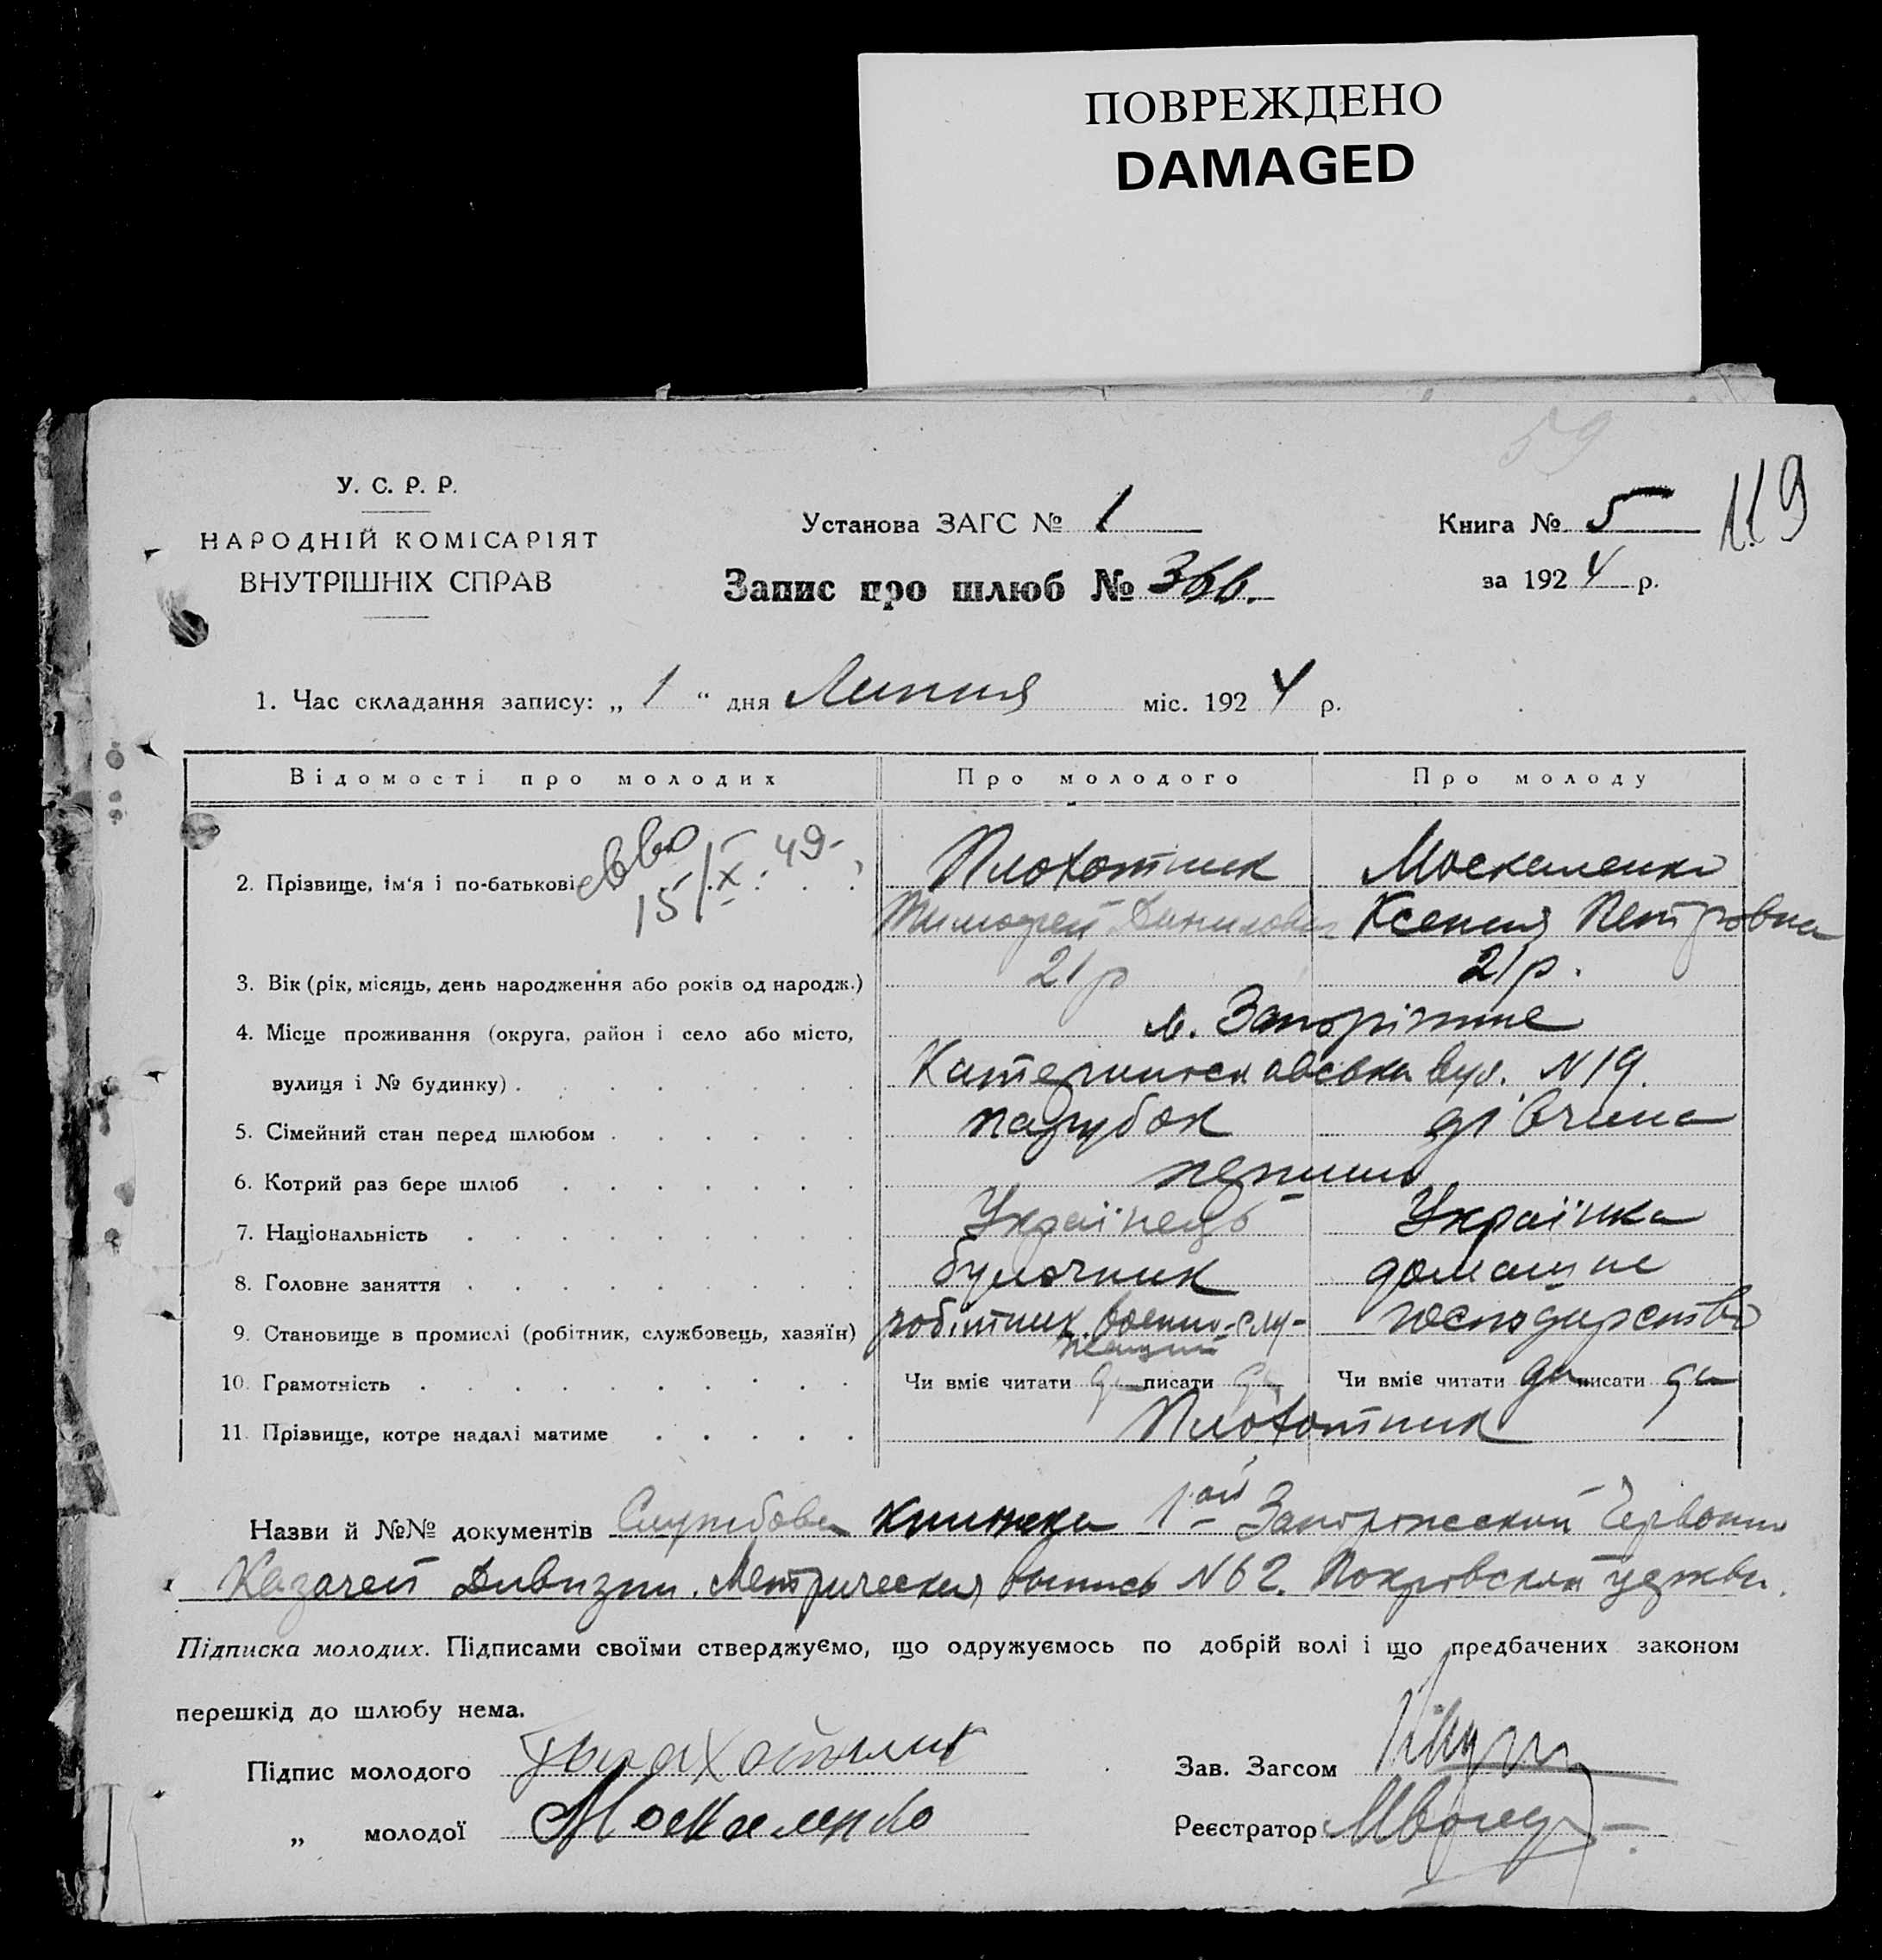 ПОВРЕЖДЕНО
DAMAGED
59
У. С. Р. Р.
НАРОДНІЙ КОМІСАРІЯТ
ВНУТРІШНІХ СПРАВ
Установа ЗАГС № 1
Запис про шлюб № 366.
Книга № 5
119
за 1924 р.
1. Час складання запису: „ 1 “ дня Липня міс. 1924 р.
Відомості про молодих Про молодого Про молоду
15/X 49
2. Прізвище, ім'я і по-батькові Плохотник Москаленко
Тимофей Данилович Ксения Петровна
3. Вік (рік, місяць, день народження або років од народж.) 21 р 21 р.
4. Місце проживання (округа, район і село або місто, м. Запоріжже
вулиця і № будинку) Катеринославська вул. N 19.
5. Сімейний стан перед шлюбом парубок дівчина
6. Котрий раз бере шлюб перший
7. Національність Українець Українка
8. Головне заняття булочник домашне
9. Становище в промислі (робітник, службовець, хазяїн) робітник. военно-слу- господарство
жащий
10. Грамотність Чи вміє читати да писати да Чи вміє читати да писати да
11. Прізвище, котре надалі матиме Плохотник
Назви й №№ документів Службова книжка 1ой Запорожский Червонно
Казачей Дивизии. Метрическая выпись N 62. Покровской церкви.
Підписка молодих. Підписами своїми стверджуємо, що одружуємось по добрій волі і що предбачених законом
перешкід до шлюбу нема.
Підпис молодого
Зав. Загсом
„ молодої Москаленко
Реєстратор